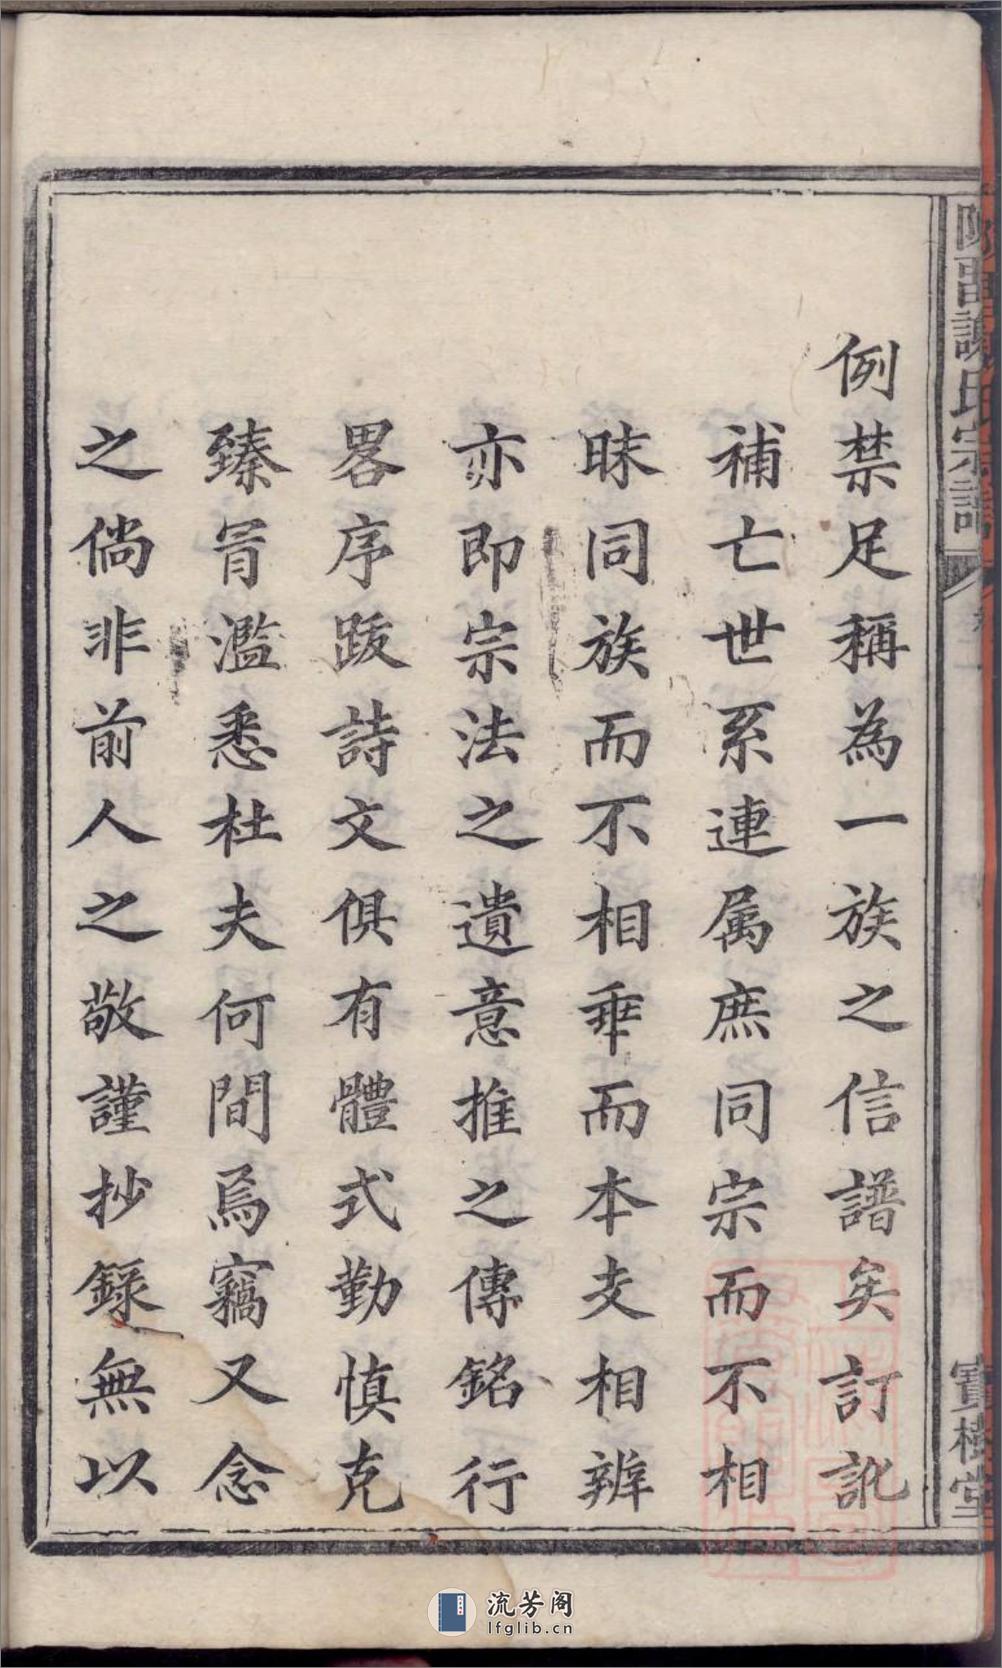 謝氏宗譜
寶樹堂
例禁足稱為一族之信譜矣訂訛
補亡世系連属庶同宗而不相
昧同族而不相乖而本支相辨
亦即宗法之遺意推之傳銘行
畧序跋詩文俱有體式勤慎克
臻肎濫悉杜夫何間焉竊又念
之倘非前人之敬謹抄錄無以
流芳阁
lfglib.cn